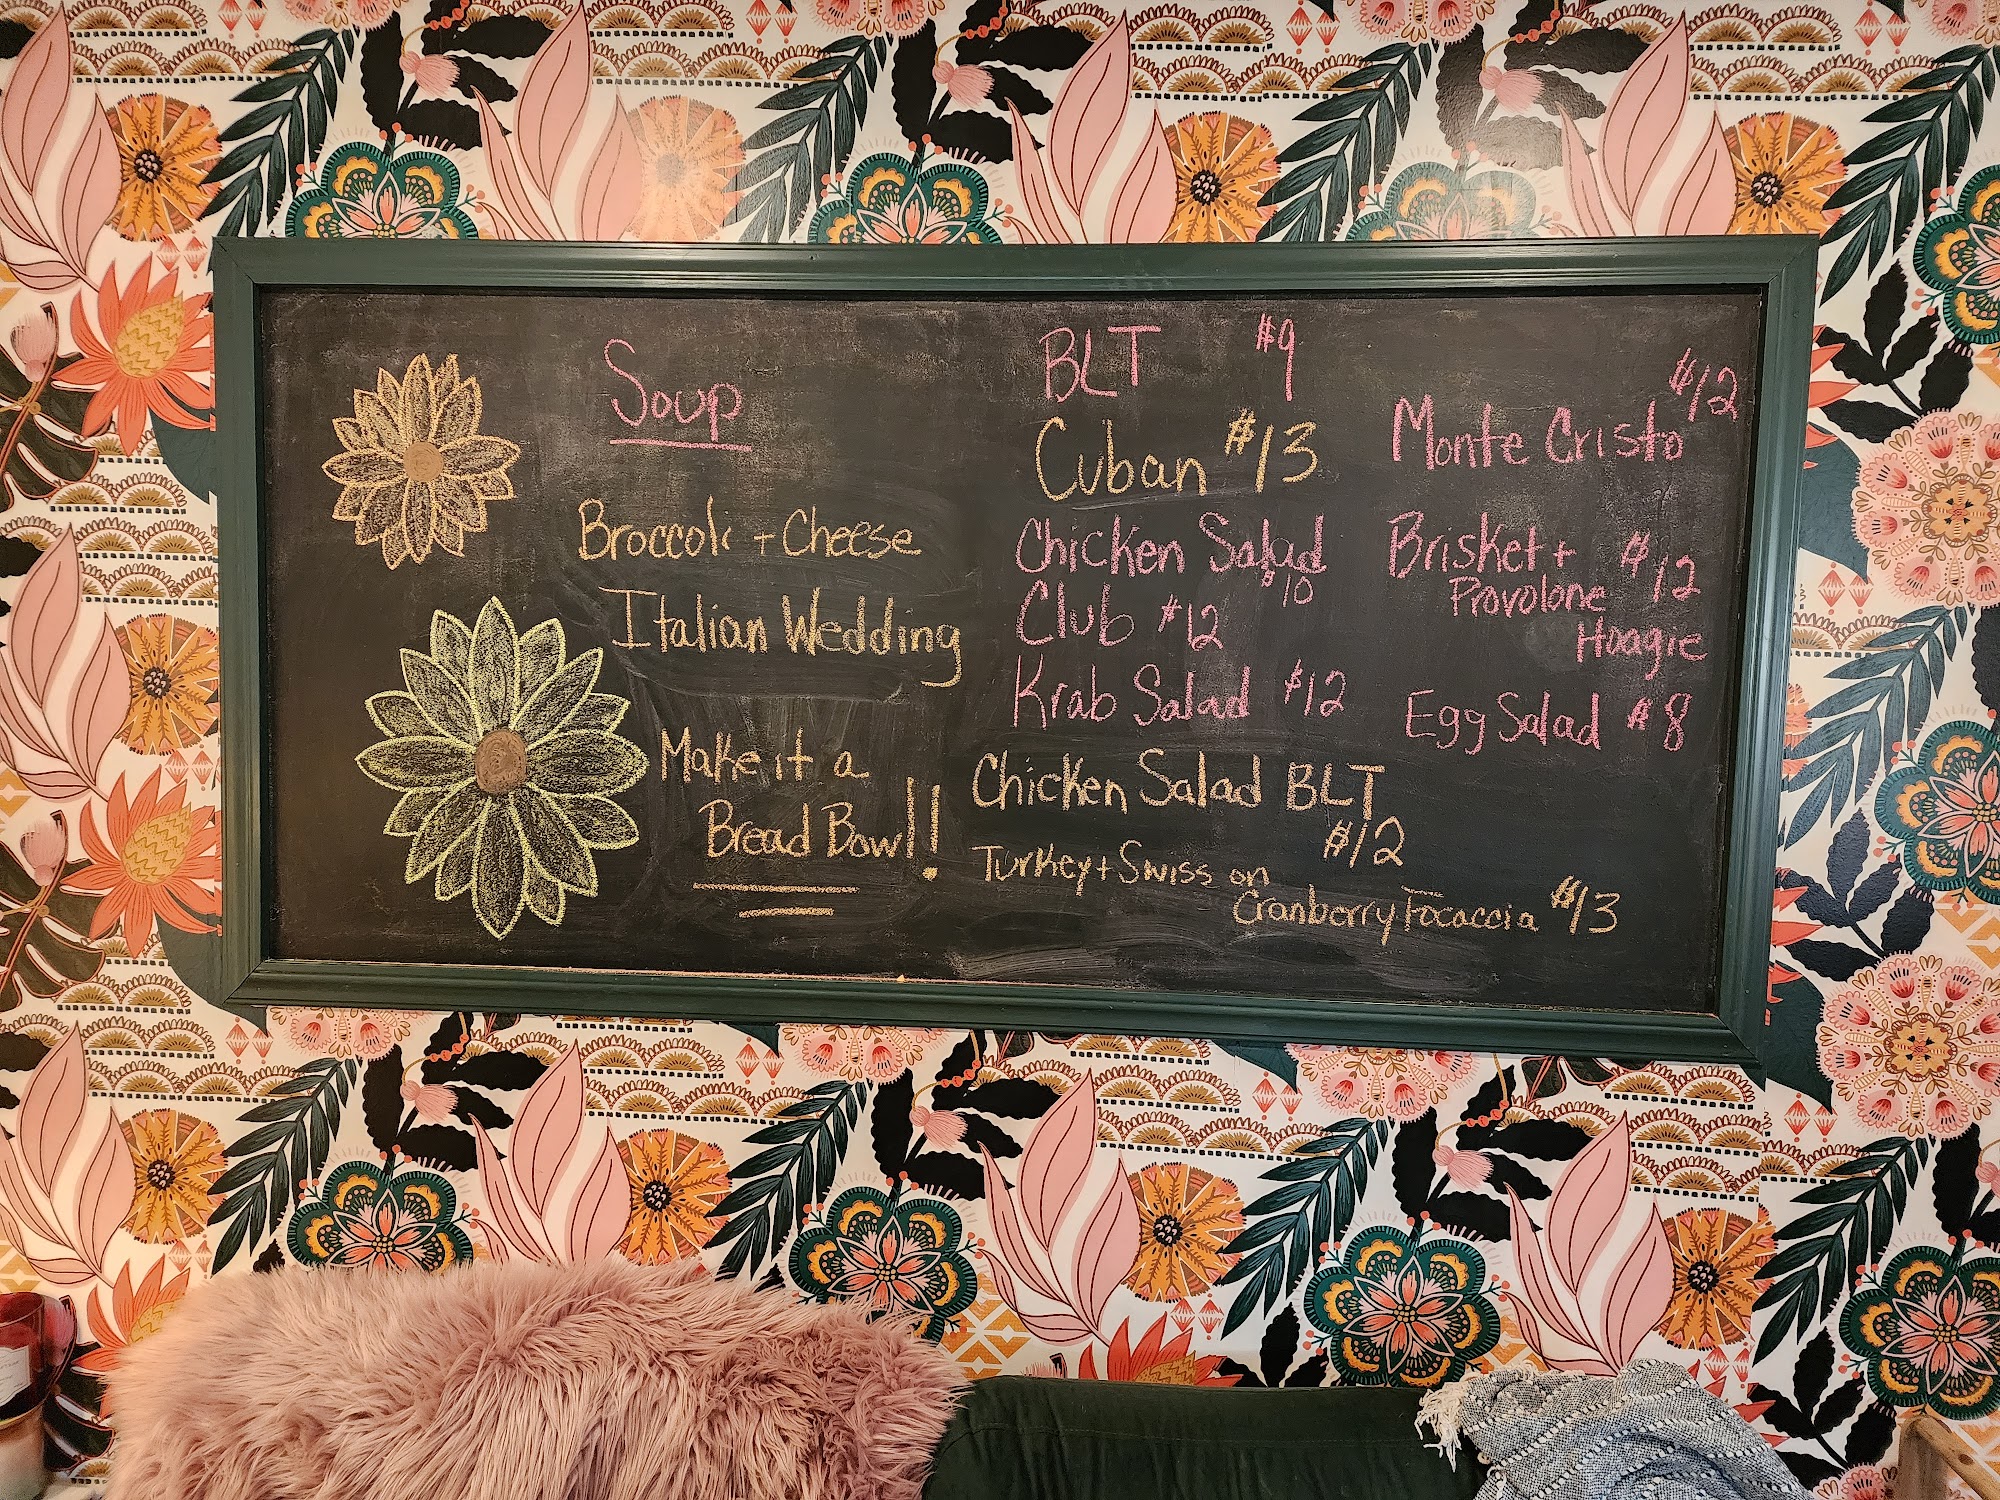 Soup
Broccoli + Cheese
Italian Wedding
Make it a
Bread Bowl!!
BLT $9
Cuban $13
Chicken Salad
$10
Club $12
Krab Salad $12
Chicken Salad BLT
$12
Turkey + Swiss on
Cranberry Focaccia $13
Monte Cristo $12
Brisket + $12
Provolone
Hoagie
Egg Salad $8